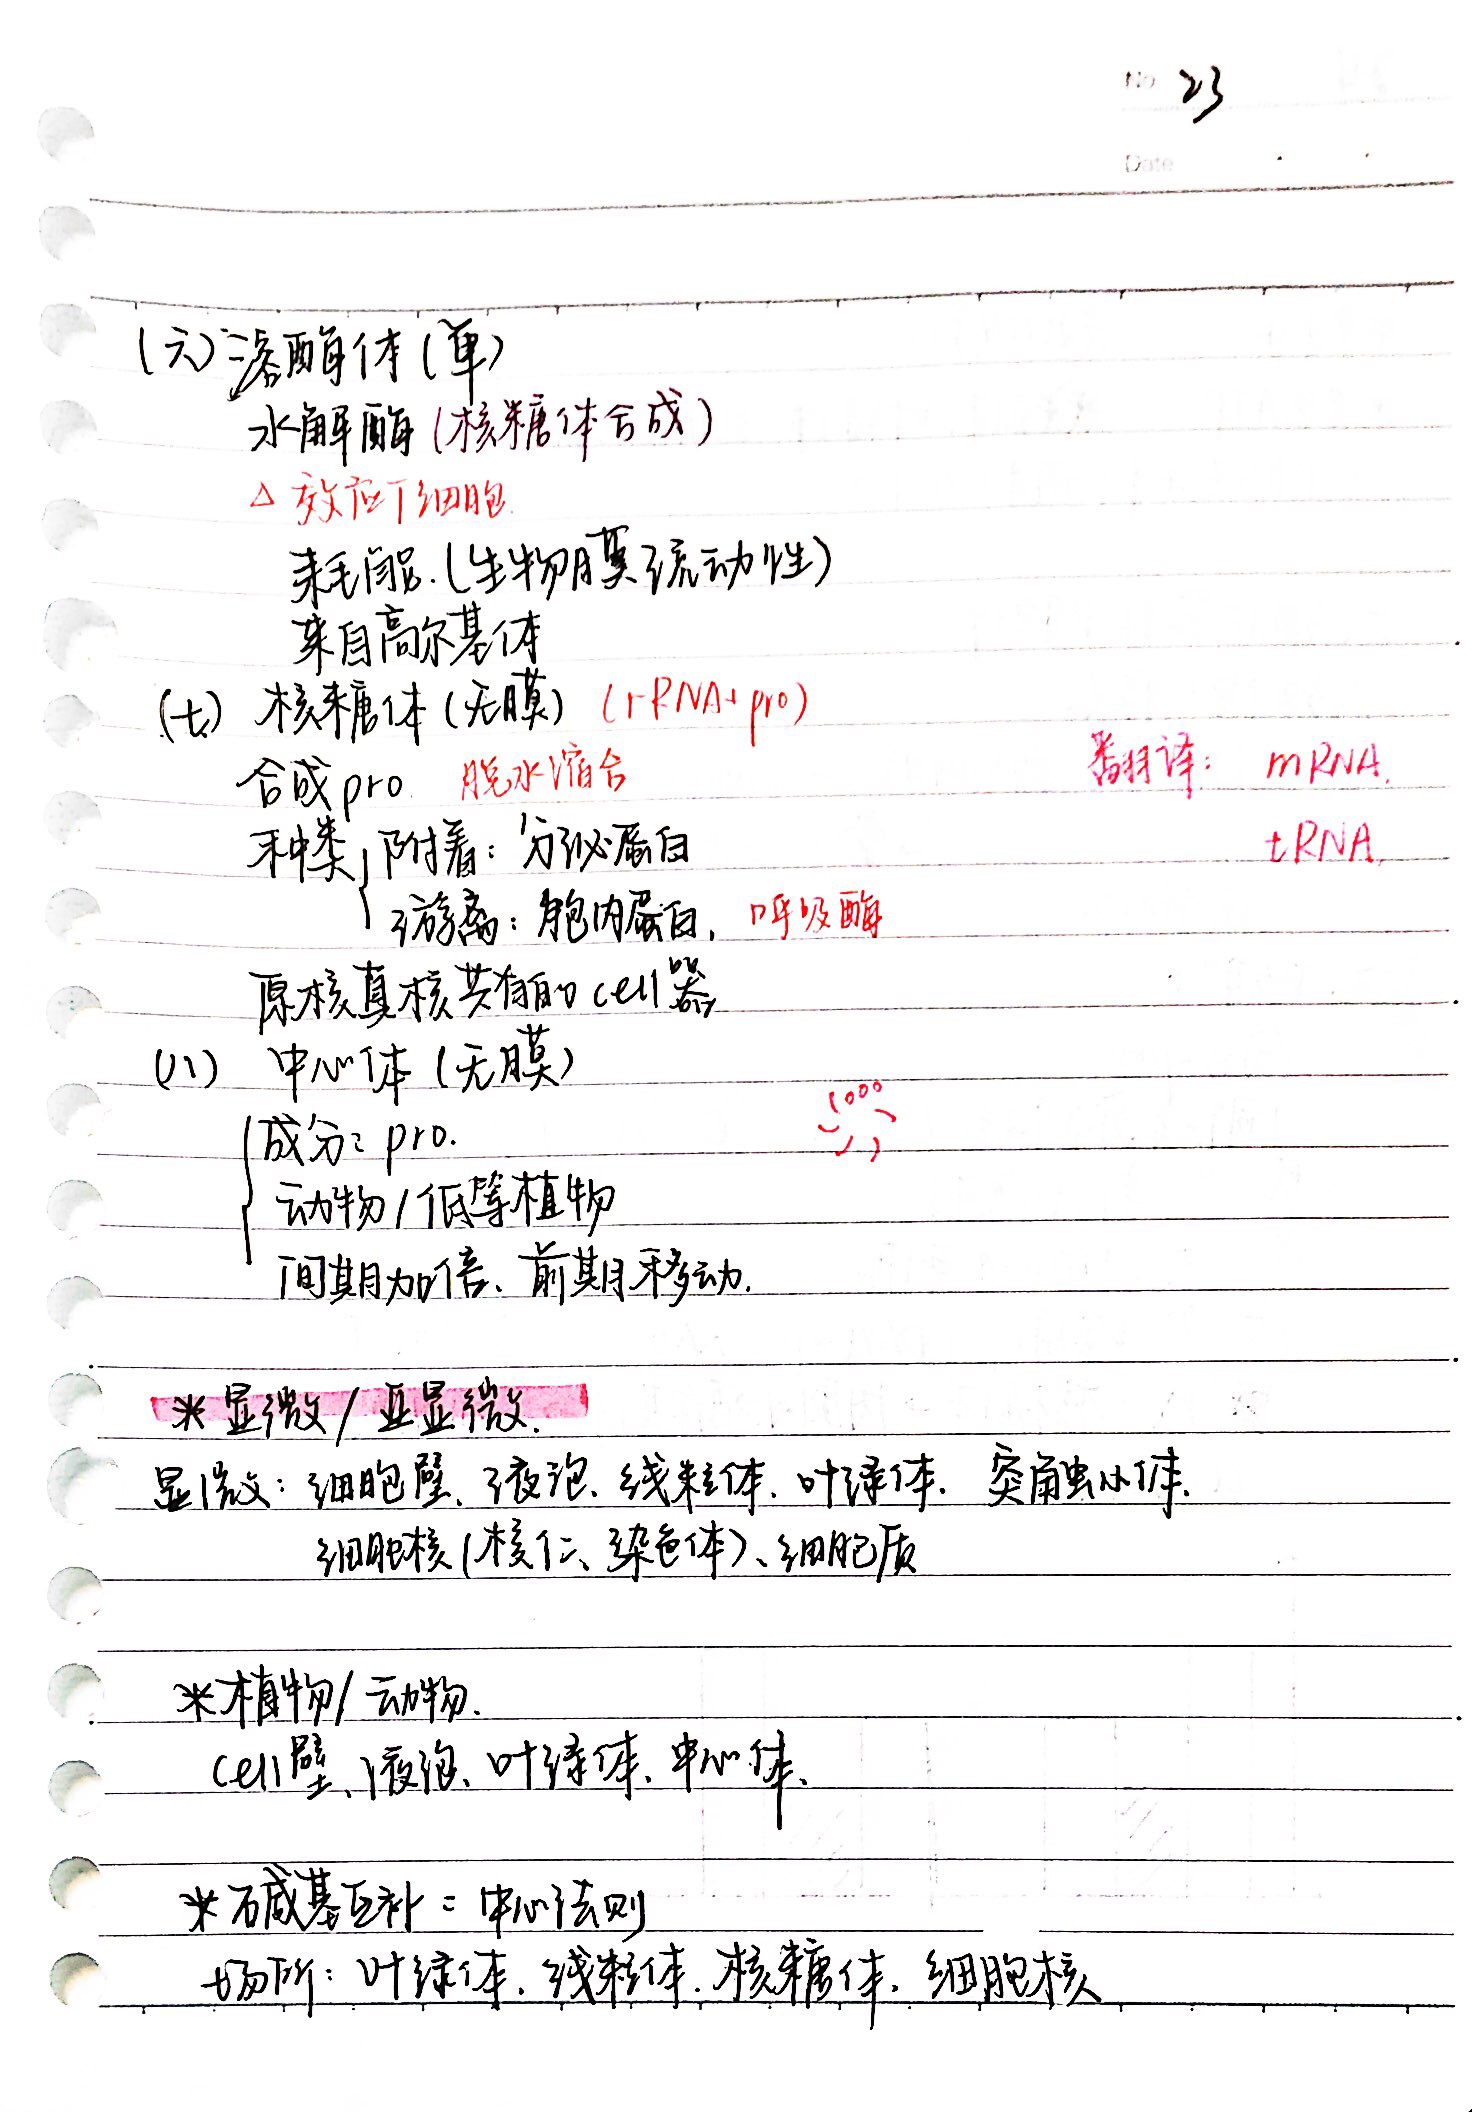 No 23
Date
(六) 溶酶体(单)
水解酶(核糖体合成)
△ 效应T细胞
来自高尔基体
(七) 核糖体(无膜) (rRNA+pro)
合成pro. 脱水缩合
翻译: mRNA.
种类 附着: 分泌蛋白
tRNA.
游离: 胞内蛋白, 呼吸酶
原核真核共有的cell器
(八) 中心体(无膜)
成分: pro.
动物/低等植物
间期加倍、前期移动.
*显微/亚显微.
显微: 细胞壁、液泡、线粒体、叶绿体、突触小体.
细胞核(核仁、染色体)、细胞质
*植物/动物.
cell壁、液泡、叶绿体、中心体、
*碱基互补=中心法则
场所: 叶绿体、线粒体、核糖体、细胞核